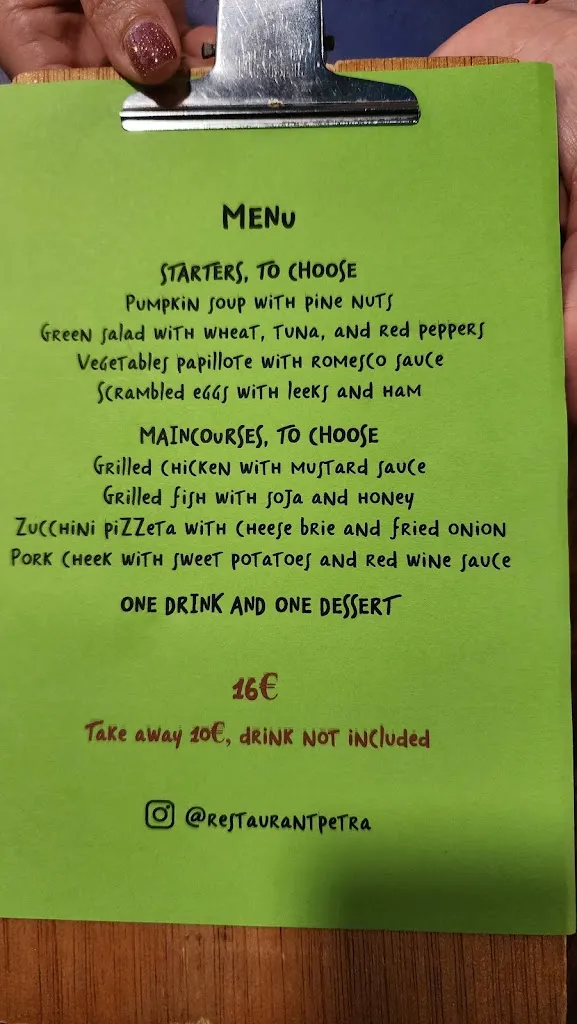 MENU
STARTERS, TO CHOOSE
PUMPKIN SOUP WITH PINE NUTS
GREEN SALAD WITH WHEAT, TUNA, AND RED PEPPERS
VEGETABLES PAPILLOTE WITH ROMESCO SAUCE
SCRAMBLED EGGS WITH LEEKS AND HAM
MAINCOURSES, TO CHOOSE
GRILLED CHICKEN WITH MUSTARD SAUCE
GRILLED FISH WITH SOJA AND HONEY
ZUCCHINI PIZZETA WITH CHEESE BRIE AND FRIED ONION
PORK CHEEK WITH SWEET POTATOES AND RED WINE SAUCE
ONE DRINK AND ONE DESSERT
16€
TAKE AWAY 10€, DRINK NOT INCLUDED
@RESTAURANTPETRA